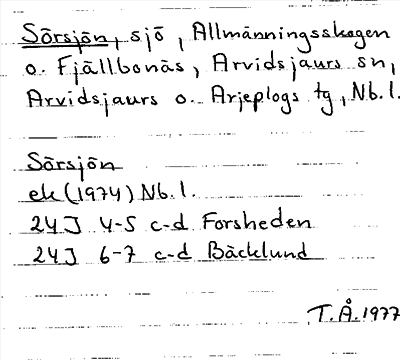 Sörsjön, sjö, Allmänningsskogen
o. Fjällbonäs, Arvidsjaurs sn,
Arvidsjaurs o. Arjeplogs tg, Nb.l.
Sörsjön
ek (1974) Nb.l.
24J 4-5 c-d Forsheden
24J 6-7 c-d Bäcklund
T.Å. 1977